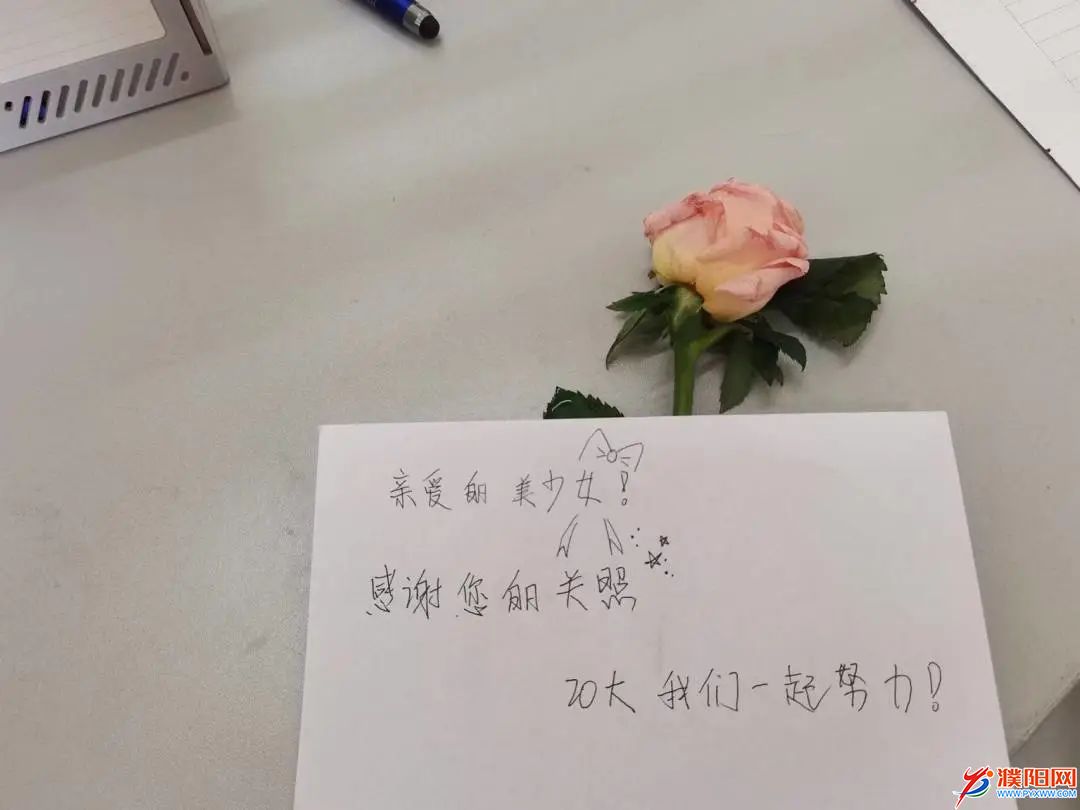 亲爱的美少女!
感谢您的关照
20大 我们一起努力!
濮阳网
WWW.PYXWW.COM